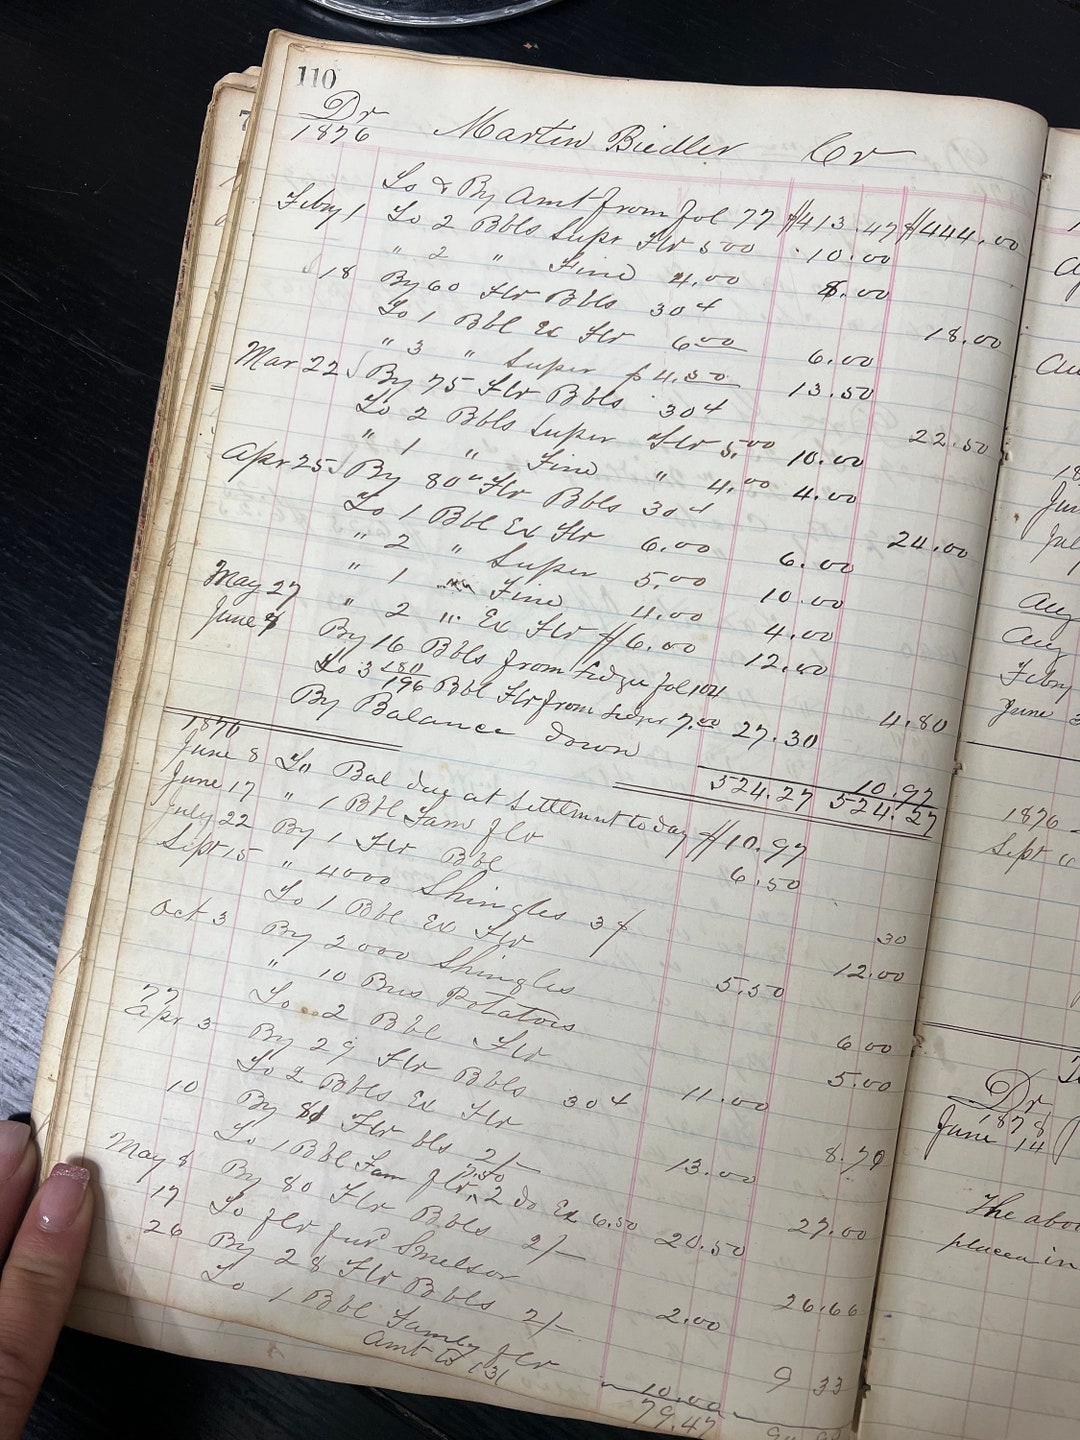 110
Dr Martin Biedler Cr
1876
To & By Amt from fol 77 $413.47 $444.00
Feby 1 To 2 Bbls Supr Flr 5 00 10.00
" 2 " Fine 4.00 8.00
18 By 60 Flr Bbls 30¢ 18.00
To 1 Bbl Ex Flr 6 00 6.00
" 3 " Super $4.50 13.50
Mar 22 By 75 Flr Bbls 30¢ 22.50
To 2 Bbls Super Flr 5.00 10.00
" 1 " Fine " 4.00 4.00
Apr 25 By 80 " Flr Bbls 30¢ 24.00
To 1 Bbl Ex Flr 6.00 6.00
" 2 " Super 5.00 10.00
" 1 " Fine 4.00 4.00
May 27 " 2 " Ex Flr $6.00 12.00
June By 16 Bbls from fol 104 4.80
To 3 180/196 Bbl Flr from 7.00 27.30
By Balance down 10.97
524.27 524.27
1876
June 8 To Bal due at Settlment to day $10.97
June 17 " 1 Bbl Fam flr 6.50
July 22 By 1 Flr Bbl 30
Sept 15 " 4000 Shingles 3 12.00
To 1 Bbl Ex Flr 5.50
Oct 3 By 2000 Shingles 6 00
" 10 Bus Potatoes 5.00
To 2 Bbl Flr 11.00
77
Apr 3 By 29 Flr Bbls 30¢ 8.70
To 2 Bbls Ex Flr 13.00
10 By 81 Flr bls 2/- 27.00
7.50
To 1 Bbl Fam flr, 2 do Ex 6.50 20.50
May 8 By 80 Flr Bbls 2/- 26.66
17 To flr fur Smelsor 2.00
26 By 28 Flr Bbls 2/- 9 33
To 1 Bbl Famey flr 10.00
Amt to 131 79.47
Dr
1878
June 14
1876
Sept
Aug
Aug
Feby
June 3
The abov
placed in